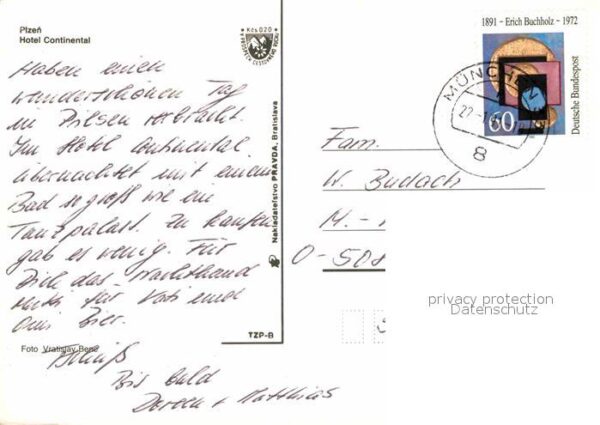 Plzeň
Hotel Continental
Kčs 0,20
Haben einen
wunderschönen Tag
in Pilsen verbracht.
Im Hotel Continental
übernachtet mit einem
Bad so groß wie ein
Tanzpalast. Zu kaufen
gab es wenig. Für
Dich das
für Vati und
Omi Bier.
Bis bald
Doreen + Matthias
Foto Vratislav Beně
Nakladatelstvo PRAVDA, Bratislava
TZP-B
1891 - Erich Buchholz - 1972
60
Deutsche Bundespost
MÜNCHEN
8
Fam.
W. Budach
M.-
O-508
privacy protection
Datenschutz